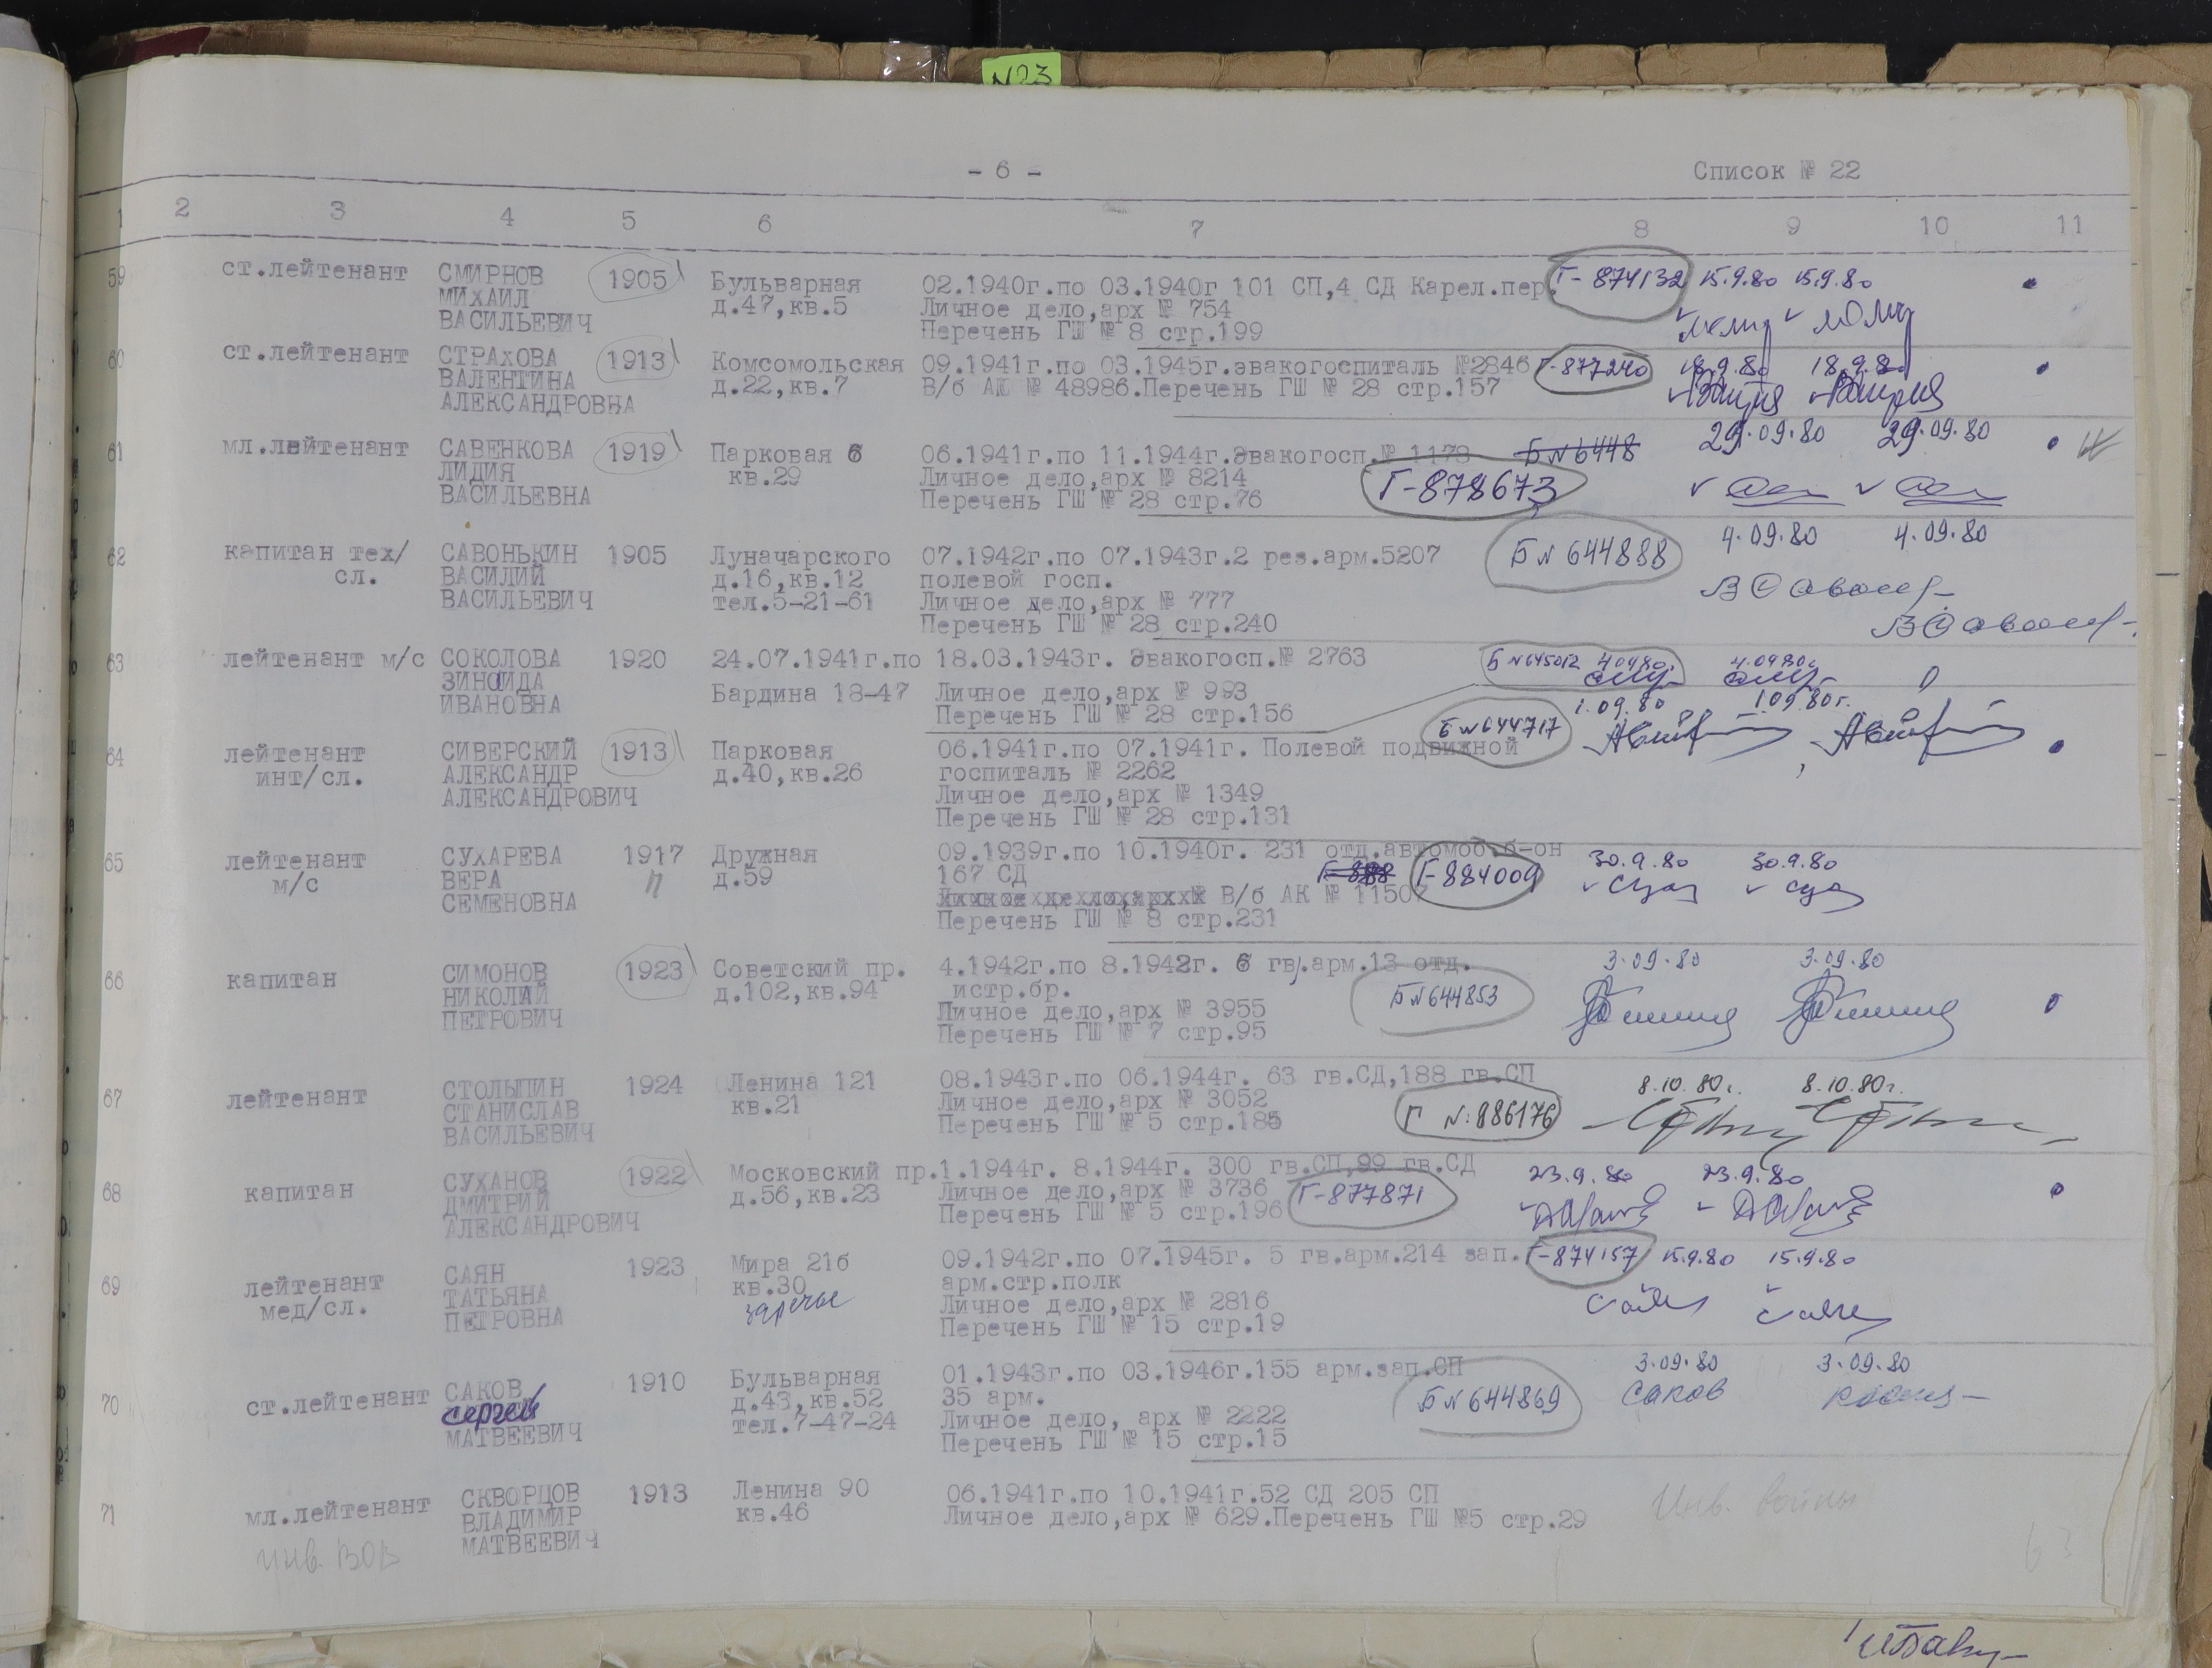 N23
- 6 -
Список № 22
1 2 3 4 5 6 7 8 9 10 11
59 ст.лейтенант СМИРНОВ 1905 Бульварная 02.1940г.по 03.1940г 101 СП,4 СД Карел.пер. Г-874132 15.9.80 15.9.80
МИХАИЛ д.47,кв.5 Личное дело,арх № 754
ВАСИЛЬЕВИЧ Перечень ГШ № 8 стр.199
60 ст.лейтенант СТРАХОВА 1913 Комсомольская 09.1941г.по 03.1945г.эвакогоспиталь №2846 Г-877240 18.9.80 18.9.80
ВАЛЕНТИНА д.22,кв.7 В/б АК № 48986.Перечень ГШ № 28 стр.157
АЛЕКСАНДРОВНА
61 мл.лейтенант САВЕНКОВА 1919 Парковая 6 06.1941г.по 11.1944г.Эвакогосп.№ 1178 Б N 6448 29.09.80 29.09.80
ЛИДИЯ кв.29 Личное дело,арх № 8214 Г-878673
ВАСИЛЬЕВНА Перечень ГШ № 28 стр.76
62 капитан тех/ САВОНЬКИН 1905 Луначарского 07.1942г.по 07.1943г.2 рез.арм.5207 Б N 644888 4.09.80 4.09.80
сл. ВАСИЛИЙ д.16,кв.12 полевой госп.
ВАСИЛЬЕВИЧ тел.5-21-61 Личное дело,арх № 777
Перечень ГШ № 28 стр.240
63 лейтенант м/с СОКОЛОВА 1920 24.07.1941г.по 18.03.1943г. Эвакогосп.№ 2763 Б N 645012 4.09.80. 4.09.80г
ЗИНОИДА Бардина 18-47 Личное дело,арх № 993
ИВАНОВНА Перечень ГШ № 28 стр.156
64 лейтенант СИВЕРСКИЙ 1913 Парковая 06.1941г.по 07.1941г. Полевой подвижной Б N 644717 1.09.80 1.09.80г.
инт/сл. АЛЕКСАНДР д.40,кв.26 госпиталь № 2262
АЛЕКСАНДРОВИЧ Личное дело,арх № 1349
Перечень ГШ № 28 стр.131
65 лейтенант СУХАРЕВА 1917 Дружная 09.1939г.по 10.1940г. 231 отд.автомоб.б-он 30.9.80 30.9.80
м/с ВЕРА п д.59 167 СД Г-888 Г-884009
СЕМЕНОВНА Личное дело,арх № В/б АК № 11507
Перечень ГШ № 8 стр.231
66 капитан СИМОНОВ 1923 Советский пр. 4.1942г.по 8.1942г. 6 гв.арм.13 отд. 3.09.80 3.09.80
НИКОЛАЙ д.102,кв.94 истр.бр. Б N 644853
ПЕТРОВИЧ Личное дело,арх № 3955
Перечень ГШ № 7 стр.95
67 лейтенант СТОЛЫПИН 1924 Ленина 121 08.1943г.по 06.1944г. 63 гв.СД,188 гв.СП 8.10.80г. 8.10.80г.
СТАНИСЛАВ кв.21 Личное дело,арх № 3052 Г N: 886176
ВАСИЛЬЕВИЧ Перечень ГШ № 5 стр.185
68 капитан СУХАНОВ 1922 Московский пр.1.1944г. 8.1944г. 300 гв.СП,99 гв.СД 23.9.80 23.9.80
ДМИТРИЙ д.56,кв.23 Личное дело,арх № 3736 Г-877871
АЛЕКСАНДРОВИЧ Перечень ГШ № 5 стр.196
69 лейтенант САЯН 1923 Мира 21б 09.1942г.по 07.1945г. 5 гв.арм.214 зап. Г-874157 15.9.80 15.9.80
мед/сл. ТАТЬЯНА кв.30 арм.стр.полк
ПЕТРОВНА заречье Личное дело,арх № 2816
Перечень ГШ № 15 стр.19
70 ст.лейтенант САКОВ 1910 Бульварная 01.1943г.по 03.1946г.155 арм.зап.СП 3.09.80 3.09.80
Сергей д.43,кв.52 35 арм. Б N 644869 Саков
МАТВЕЕВИЧ тел.7-47-24 Личное дело, арх № 2222
Перечень ГШ № 15 стр.15
71 мл.лейтенант СКВОРЦОВ 1913 Ленина 90 06.1941г.по 10.1941г.52 СД 205 СП Инв. войны
инв. ВОВ ВЛАДИМИР кв.46 Личное дело,арх № 629.Перечень ГШ №5 стр.29
МАТВЕЕВИЧ
63